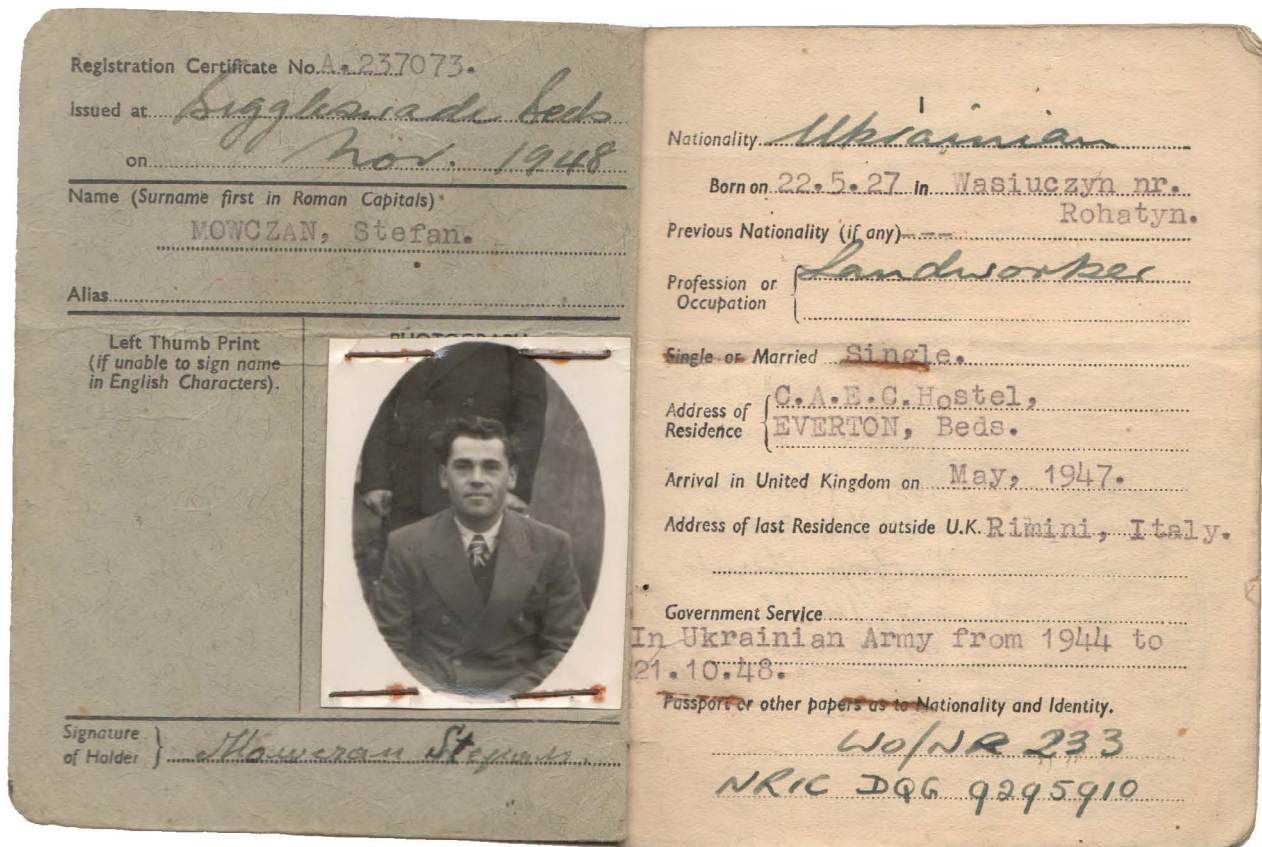 Registration Certificate No. A. 237073.
Issued at Biggleswade Beds
on Nov. 1948
Name (Surname first in Roman Capitals)
MOWCZAN, Stefan.
Alias
Left Thumb Print
(if unable to sign name
in English Characters).
PHOTOGRAPH
Signature
of Holder } Mowczan Stepan.
1
Nationality Ukrainian
Born on 22.5.27 in Wasiuczyn nr.
Rohatyn.
Previous Nationality (if any) ---
Profession or
Occupation { Landworker
Single or Married Single.
Address of
Residence { C.A.E.C.Hostel,
EVERTON, Beds.
Arrival in United Kingdom on May, 1947.
Address of last Residence outside U.K. Rimini, Italy.
Government Service
In Ukrainian Army from 1944 to
21.10.48.
Passport or other papers as to Nationality and Identity.
WO/NR 233
NRIC DQG 9295910